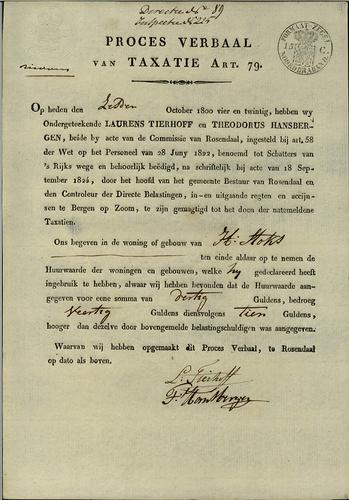 Directie N° 89
Inspectie N° 215
PROCES VERBAAL
VAN TAXATIE ART. 79.
FORMAAT ZEGEL
15 C.
NOORDBRABAND
Op heden den Zesden October 1800 vier en twintig, hebben wy
Ondergeteekende LAURENS TIERHOFF en THEODORUS HANSBER-
GEN, beide by acte van de Commissie van Rosendaal, ingesteld bij art. 58
der Wet op het Personeel van 28 Juny 1822, benoemd tot Schatters van
's Rijks wege en behoorlijk beëdigd, na schriftelijk bij acte van 18 Sep-
tember 1824, door het hoofd van het gemeente Bestuur van Rosendaal en
den Controleur der Directe Belastingen, in-en uitgaande regten en accijn-
sen te Bergen op Zoom, te zijn gemagtigd tot het doen der natemeldene
Taxatien.
Ons begeven in de woning of gebouw van H: Stoks
ten einde aldaar op te nemen de
Huurwaarde der woningen en gebouwen, welke hy gedeclareerd heeft
ingebruik te hebben, alwaar wij hebben bevonden dat de Huurwaarde aan-
gegeven voor eene somma van dertig Guldens, bedroeg
Veertig Guldens diensvolgens tien Guldens,
hooger dan dezelve door bovengemelde belastingschuldigen was aangegeven.
Waarvan wij hebben opgemaakt dit Proces Verbaal, te Rosendaal
op dato als boven.
L: Tierhoff
T: Hansbergen